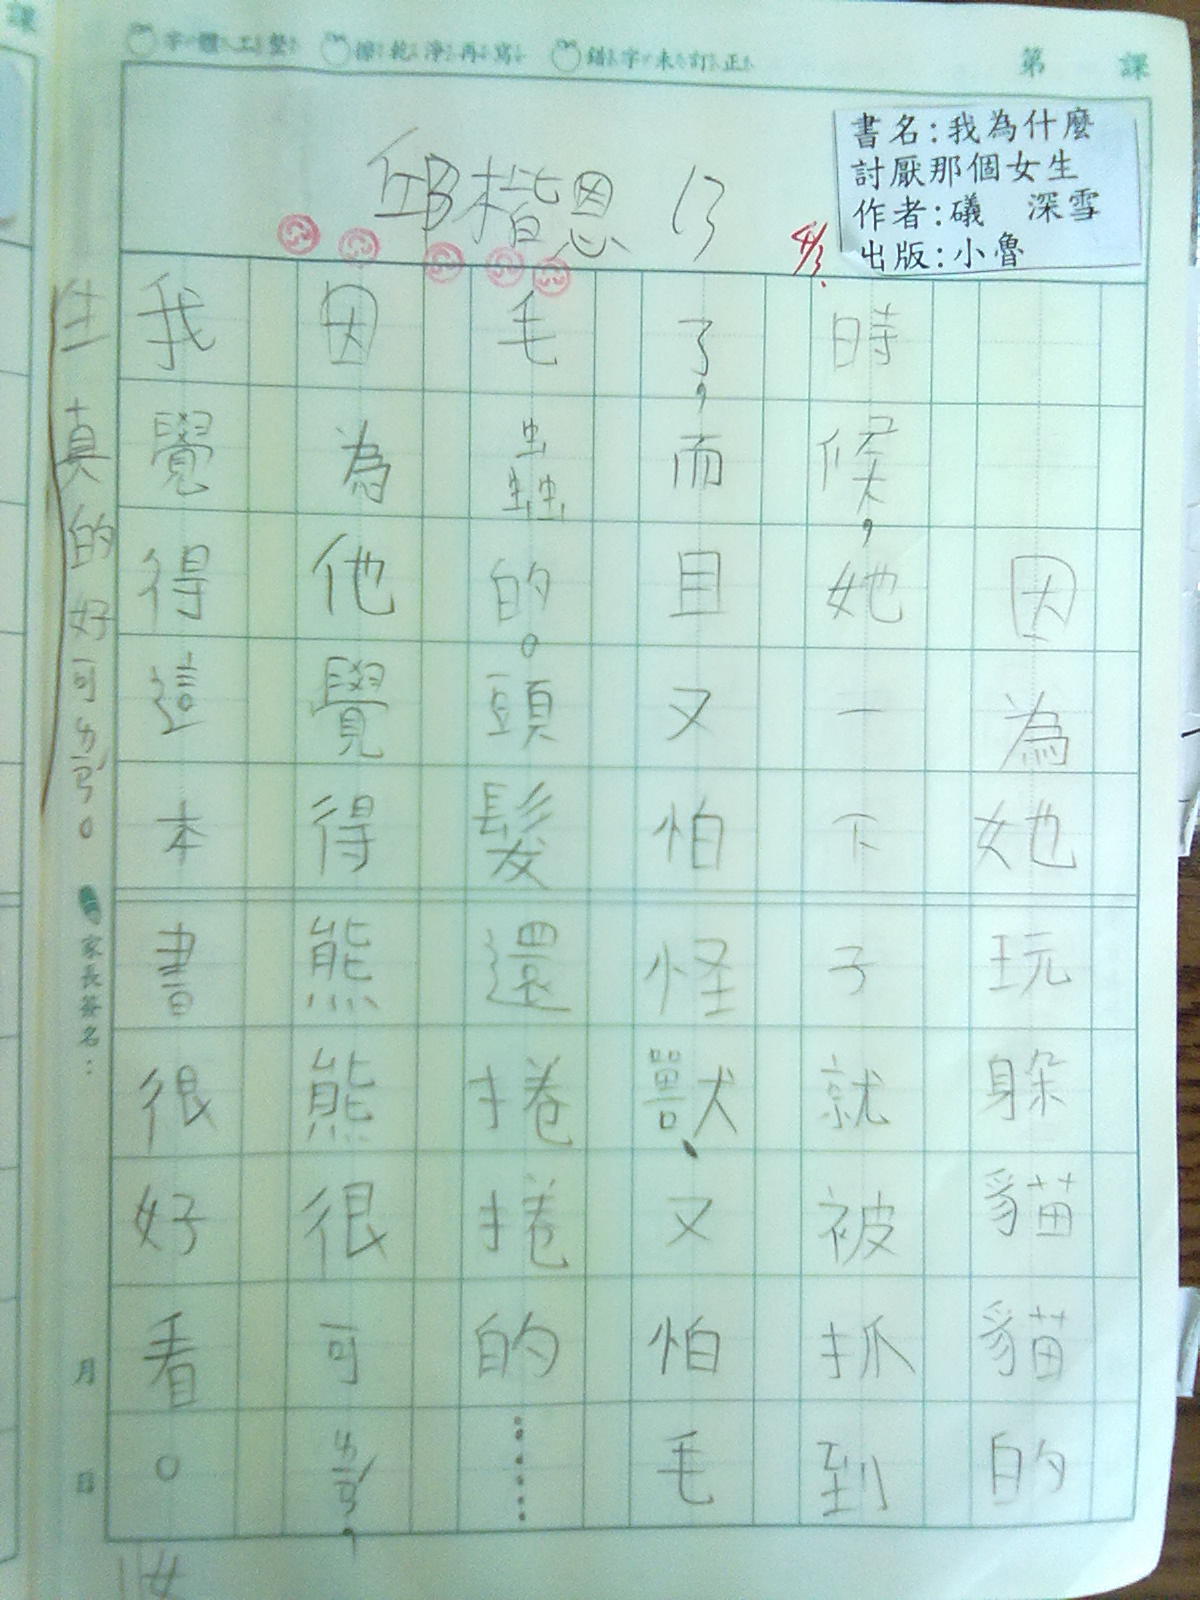 課
字體工整
擦乾淨再寫
錯字未訂正
第 課
書名:我為什麼
討厭那個女生
作者:礒 深雪
出版:小魯
邱楷恩 13
4/3
因為她玩躲貓貓的
時候,她一下子就被抓到
了,而且又怕怪獸、又怕毛
毛蟲的。頭髮還捲捲的……
因為他覺得熊熊很可ㄌㄧㄢˊ,
我覺得這本書很好看。
生真的好可ㄌㄧㄢˊ。
家長簽名:
月 日
女